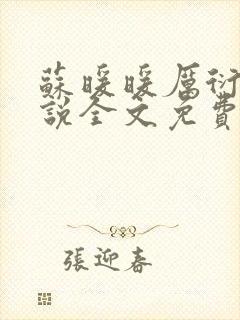 蘇暖暖厲衍
說全文免費
張迎春